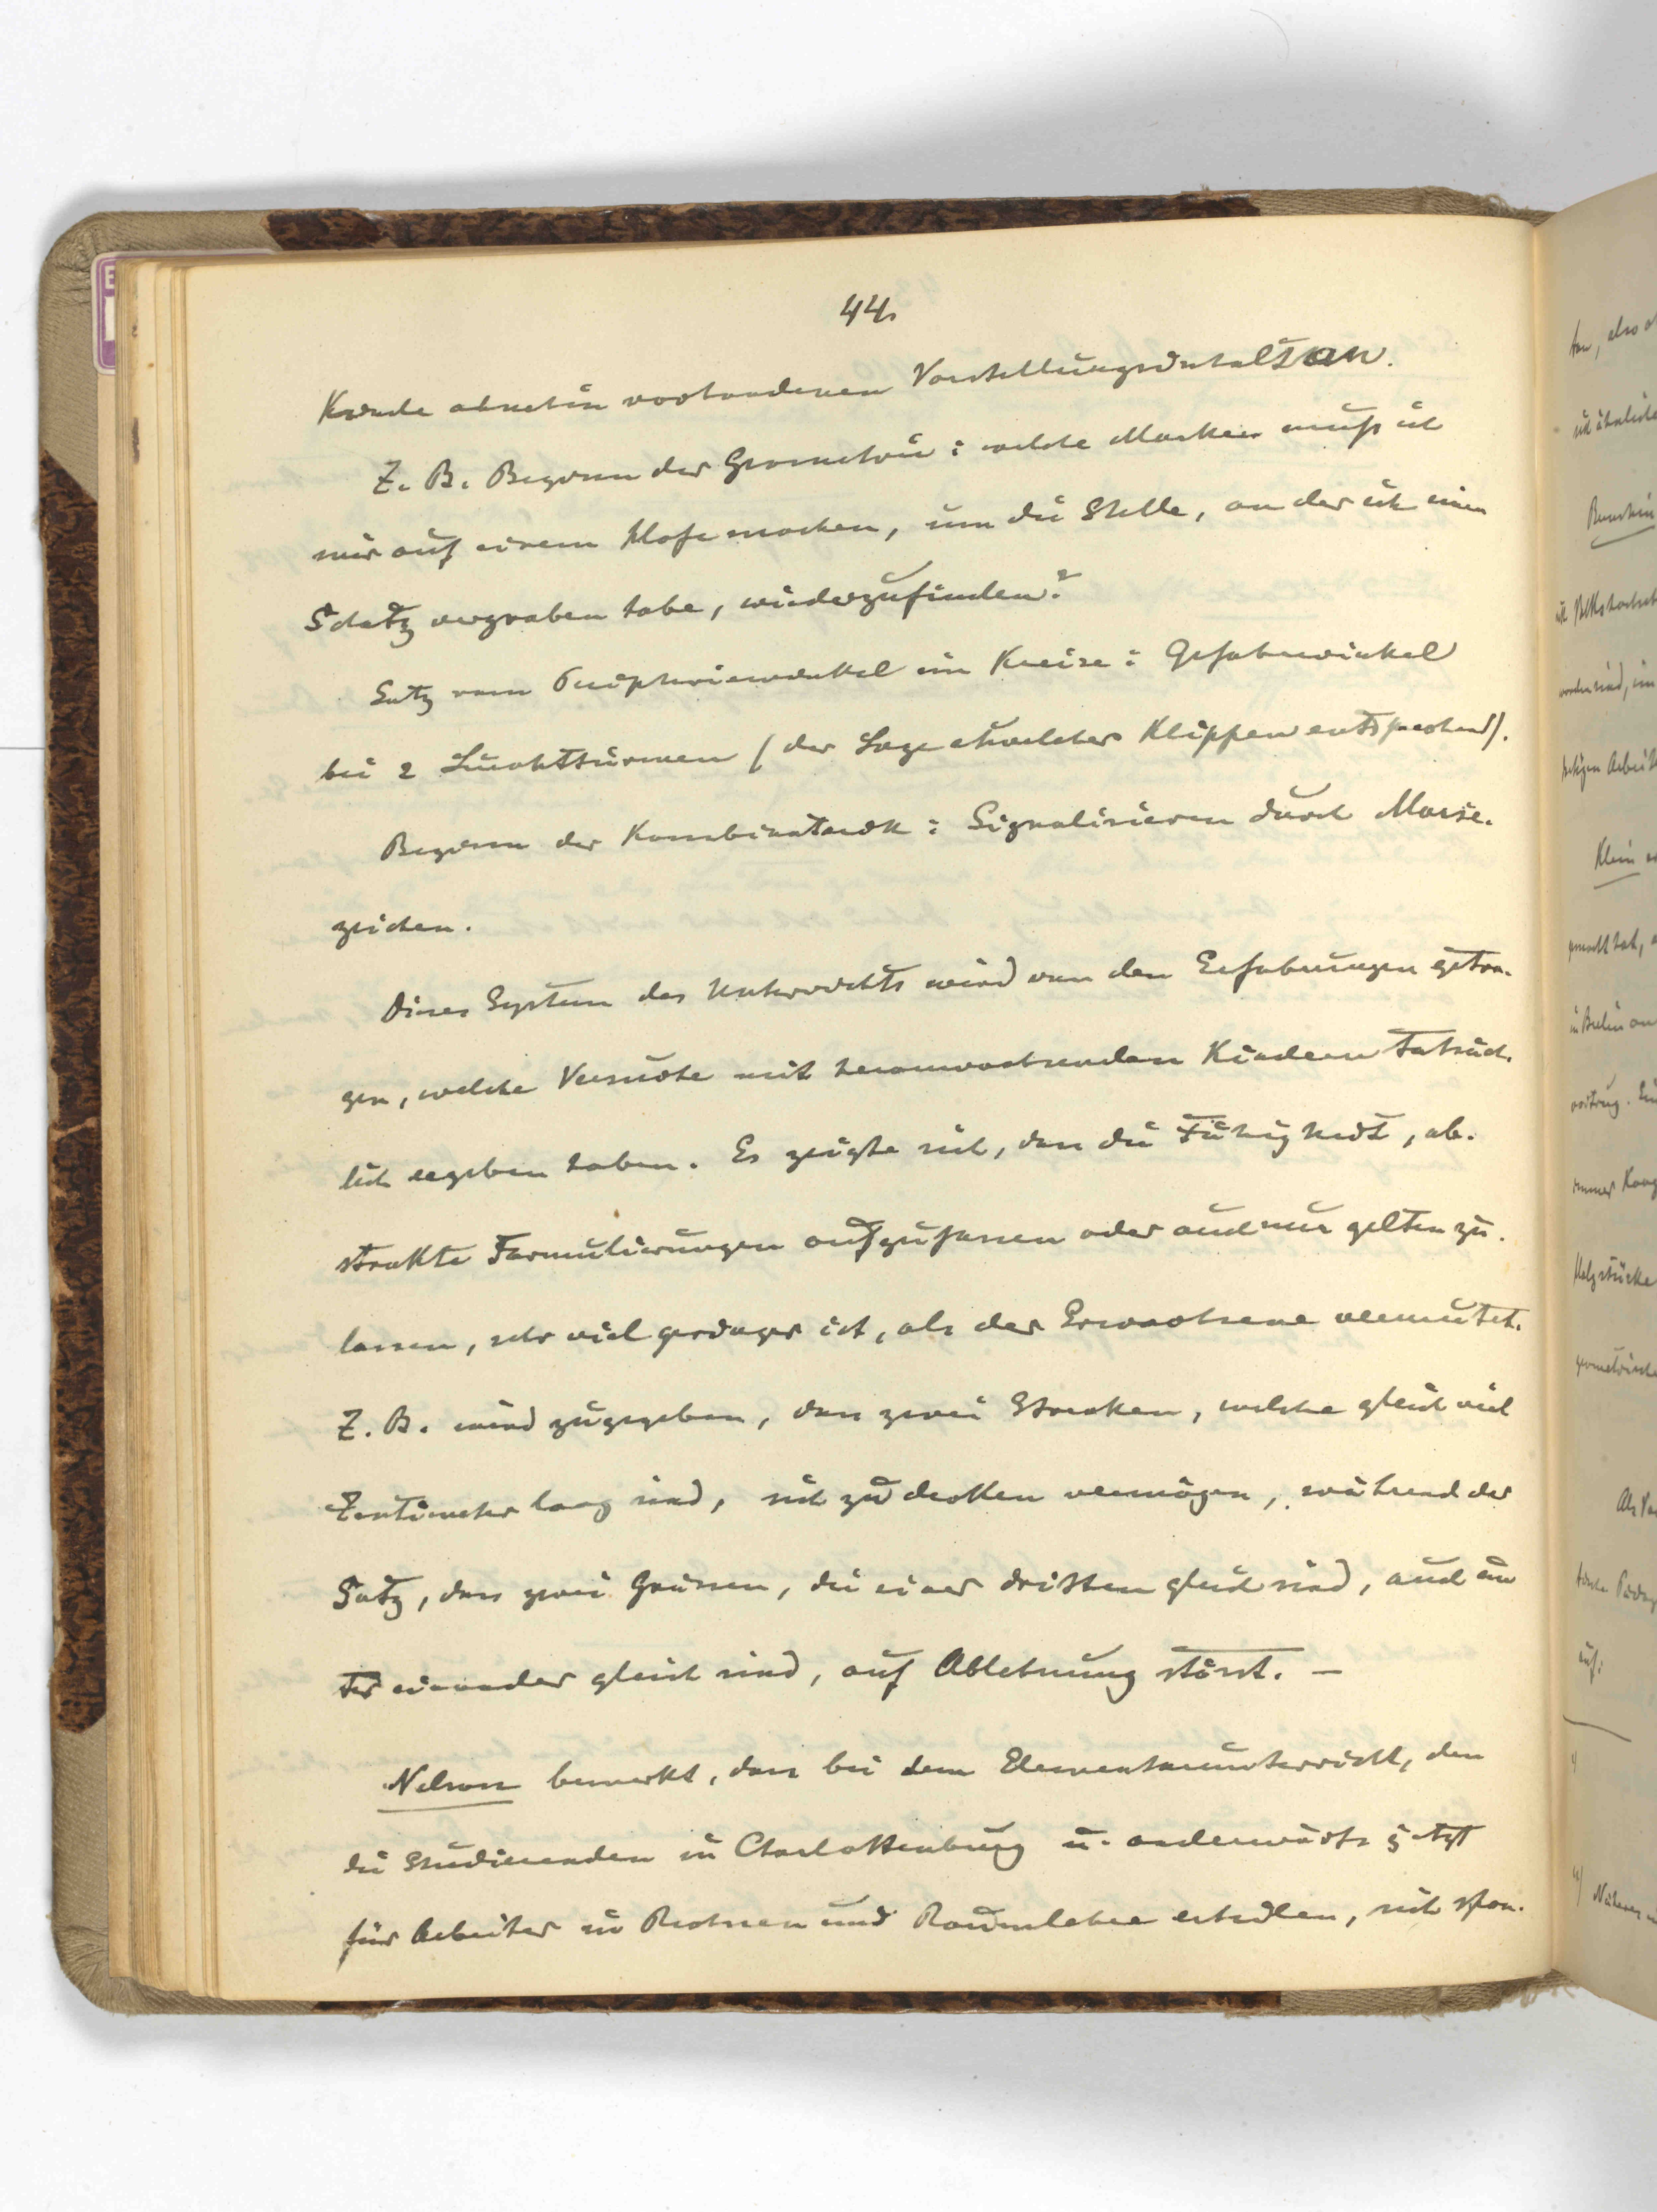 44.
Kinde ohnehin vorhandenen Vorstellungsinhalt an.
Z. B. Beginn der Geometrie: welche Marken muß ich
mir auf einem Hofe machen, um die Stelle, an der ich einen
Schatz vergraben habe, wiederzufinden?
Satz vom Peripheriewinkel im Kreise: Gefahrwinkel
bei 2 Leuchttürmen (der Lage etwelcher Klippen entsprechend).
Beginn der Kombinatorik: Signalisieren durch Morse-
zeichen.
Dieses System des Unterrichts wird von den Erfahrungen getra-
gen, welche Versuche mit heranwachsenden Kindern tatsäch-
lich ergeben haben. Es zeigte sich, dass die Fähigkeit, ab-
strakte Formulierungen aufzufassen oder auch nur gelten zu
lassen, sehr viel geringer ist, als der Erwachsene vermutet.
Z. B. wird zugegeben, dass zwei Strecken, welche gleich viel
Zentimeter lang sind, sich zu decken vermögen, während der
Satz, dass zwei Grössen, die einer dritten gleich sind, auch un
ter einander gleich sind, auf Ablehnung stösst. —
Nelson bemerkt, dass bei dem Elementarunterricht, den
die Studierenden in Charlottenburg u. anderwärts jetzt
für Arbeiter in Rechnen und Raumlehre erteilen, sich spon-
ten, also
Klein
in Berlin
vortrug.
immer
Holzstücke
auf:
4)